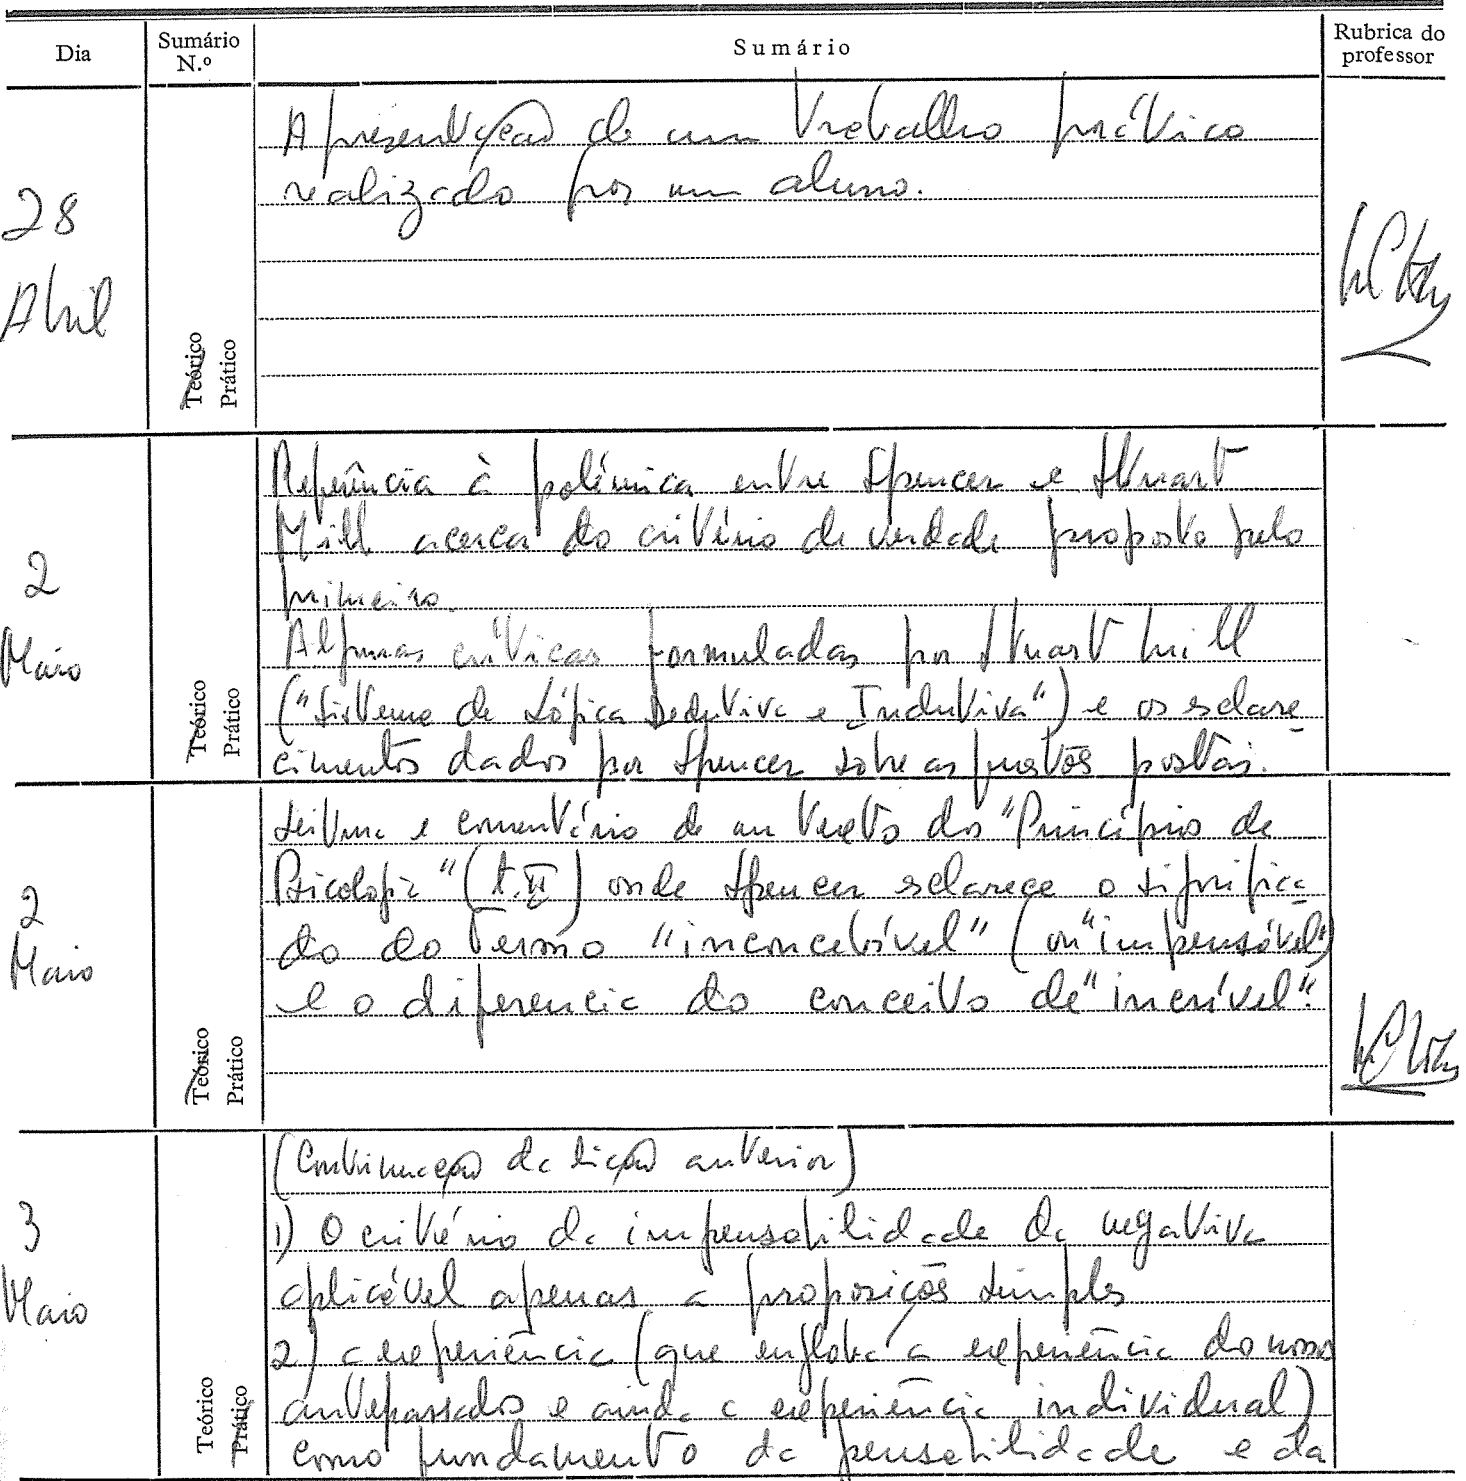 Dia Sumário N.º Sumário Rubrica do professor
28 Abril
Apresentação de um trabalho prático
realizado por um aluno.
Teórico Prático
2 Maio
Referência à polémica entre Spencer e Stuart
Mill acerca do critério de verdade proposto pelo
primeiro.
Algumas críticas formuladas por Stuart Mill
("Sistema de Lógica Dedutiva e Indutiva") e os esclare
cimentos dados por Spencer sobre as questões postas.
Teórico Prático
2 Maio
Leitura e comentário de um texto dos "Princípio de
Psicologia" (t. II) onde Spencer esclarece o significa
do do termo "inconcebível" (ou "impensável")
e o diferencia do conceito de "incrível".
Teórico Prático
3 Maio
(Continuação da lição anterior)
1) O critério da impensabilidade da negativa
aplicável apenas a proposições simples
2) a experiência (que engloba a experiência do nosso
antepassados e ainda a experiência individual)
como fundamento da pensabilidade e da
Teórico Prático